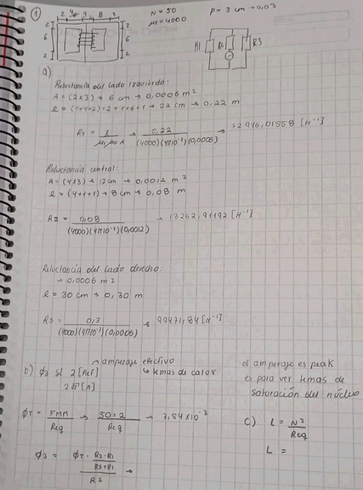 ①
2 4 3 8 2
2
6
2
2
6
2
N = 50
μr = 4000
P = 3 cm → 0,03
R1
R2
R3
a)
Reluctancia del lado izquierdo:
A = (2x3) → 6 cm → 0,0006 m²
R1 = l / μrμ0A → 0,22 / (4000)(4π10⁻⁷)(0,0006) → 72946,01558 [H⁻¹]
Reluctancia central:
A = (4x3) → 12cm → 0,0012 m²
l = (4+1+1) → 8 cm → 0,08 m
R2 = 0,08 / (4000)(4π10⁻⁷)(0,0012) → 13262,91192 [H⁻¹]
Reluctancia del lado derecho:
→ 0,0006 m²
l = 30 cm → 0,30 m
R3 = 0,3 / (4000)(4π10⁻⁷)(0,0006) → 99471,84 [H⁻¹]
b) Φ3 si 2 [Aef]
2√2 [A]
→ amperaje efectivo
↳ temas de calor
el amperaje es peak
es para ver temas de
saturación del núcleo
ΦT = FMM / Req → 50·2 / Req → 3,54x10⁻³
c) L = N² / Req
L =
Φ3 =